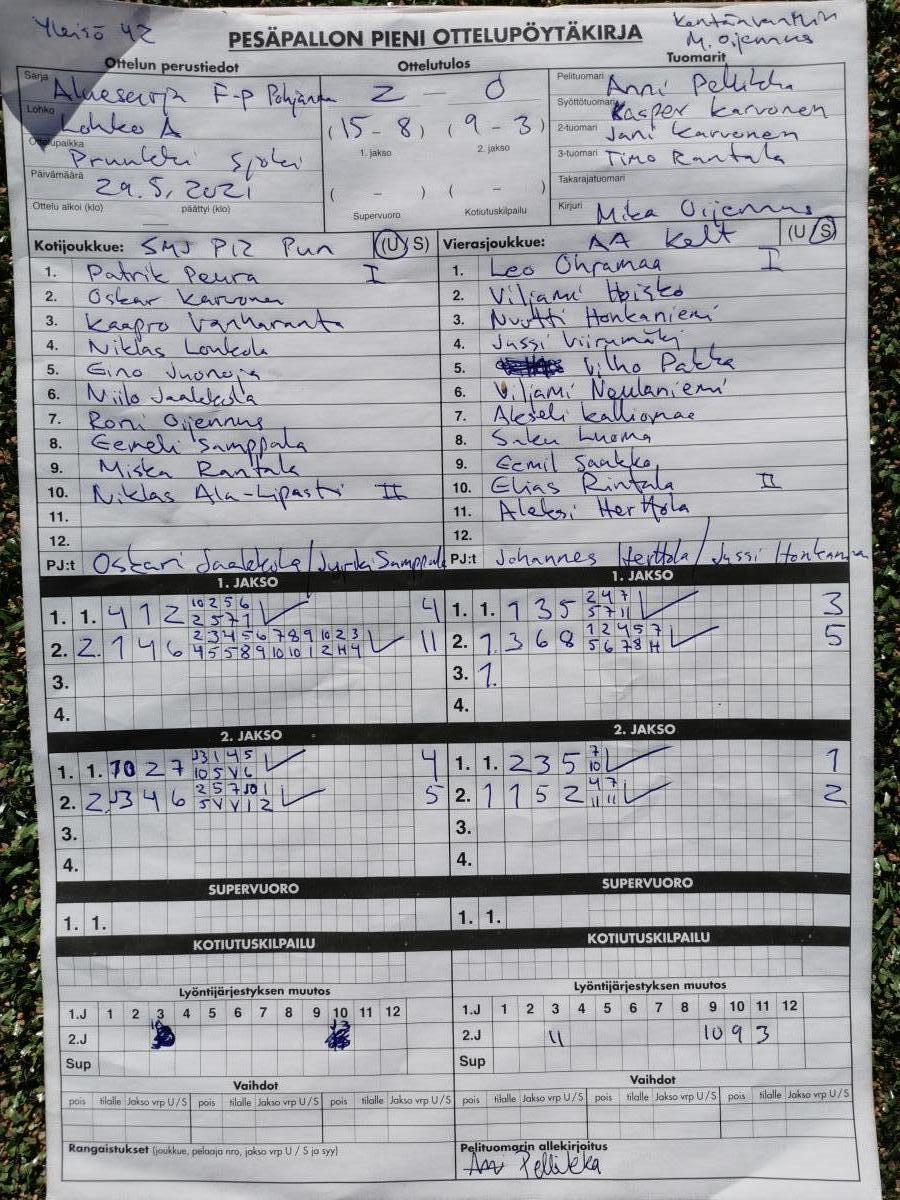 Yleisö 42
PESÄPALLON PIENI OTTELUPÖYTÄKIRJA
Kentänvanhin
M. Oijennus
Ottelun perustiedot
Ottelutulos
Tuomarit
Sarja Aluesarja F-P Pohjanmaa
2 – 0
Pelituomari Anni Pellikka
Lohko Lohko A
(15 – 8) (9 – 3)
1. jakso 2. jakso
Syöttötuomari Kasper Karvonen
2-tuomari Jani Karvonen
Ottelupaikka Pruukki Sjoki
3-tuomari Timo Rantala
Päivämäärä 29.5.2021
( – ) ( – )
Takarajatuomari
Ottelu alkoi (klo) päättyi (klo)
Supervuoro Kotiutuskilpailu
Kirjuri Mika Oijennus
Kotijoukkue: SMJ P12 Pun (U/S)
Vierasjoukkue: AA Kelt (U/S)
1. Patrik Peura I
2. Oskar Karvonen
3. Kaapro Vanharanta
4. Niklas Loukola
5. Eino Juonoja
6. Niilo Jaakkola
7. Roni Oijennus
8. Eemeli Samppala
9. Miska Rantala
10. Niklas Ala-Lipasti II
11.
12.
PJ:t Oskari Jaakkola / Jyrki Samppala
1. Leo Ohramaa I
2. Viljami Hoisko
3. Nuutti Honkaniemi
4. Jussi Viirumäki
5. Vilho Pakka
6. Viljami Neulaniemi
7. Akseli Kalliomaa
8. Saku Luoma
9. Eemil Saakko
10. Elias Rintala II
11. Aleksi Herttola
12.
PJ:t Johannes Herttola / Jussi Honkaniemi
1. JAKSO
1. 1. 4 1 2 10 2 5 6 4
2 5 7 1
2. 2. 1 4 6 2 3 4 5 6 7 8 9 10 2 3 11
4 5 5 8 9 10 10 1 2 H 4
3.
4.
1. JAKSO
1. 1. 1 3 5 2 4 7 3
5 7 11
2. 1. 3 6 8 1 2 4 5 7 5
5 6 7 8 H
3. 1.
4.
2. JAKSO
1. 1. 10 2 7 J3 1 4 5 4
10 5 V 6
2. 2. J3 4 6 2 5 7 J0 1 5
5 V V 1 2
3.
4.
2. JAKSO
1. 1. 2 3 5 7 1
10
2. 1 1 5 2 4 7 2
11 11
3.
4.
SUPERVUORO
1. 1.
SUPERVUORO
1. 1.
KOTIUTUSKILPAILU
KOTIUTUSKILPAILU
Lyöntijärjestyksen muutos
1.J 1 2 3 4 5 6 7 8 9 10 11 12
2.J 10 J3
Sup
Lyöntijärjestyksen muutos
1.J 1 2 3 4 5 6 7 8 9 10 11 12
2.J 11 10 9 3
Sup
Vaihdot
pois tilalle Jakso vrp U/S pois tilalle Jakso vrp U/S pois tilalle Jakso vrp U/S
Vaihdot
pois tilalle Jakso vrp U/S pois tilalle Jakso vrp U/S pois tilalle Jakso vrp U/S
Rangaistukset (joukkue, pelaaja nro, jakso vrp U / S ja syy)
Pelituomarin allekirjoitus
Pellikka